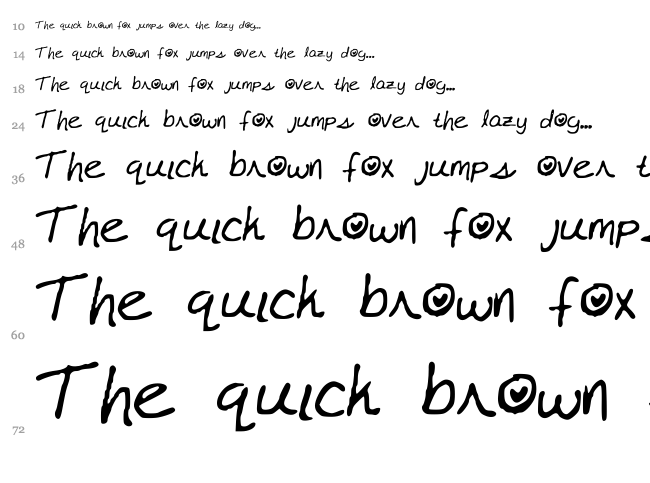 10 The quick brown fox jumps over the lazy dog...
14 The quick brown fox jumps over the lazy dog...
18 The quick brown fox jumps over the lazy dog...
24 The quick brown fox jumps over the lazy dog...
36 The quick brown fox jumps over t
48 The quick brown fox jumps
60 The quick brown fox
72 The quick brown